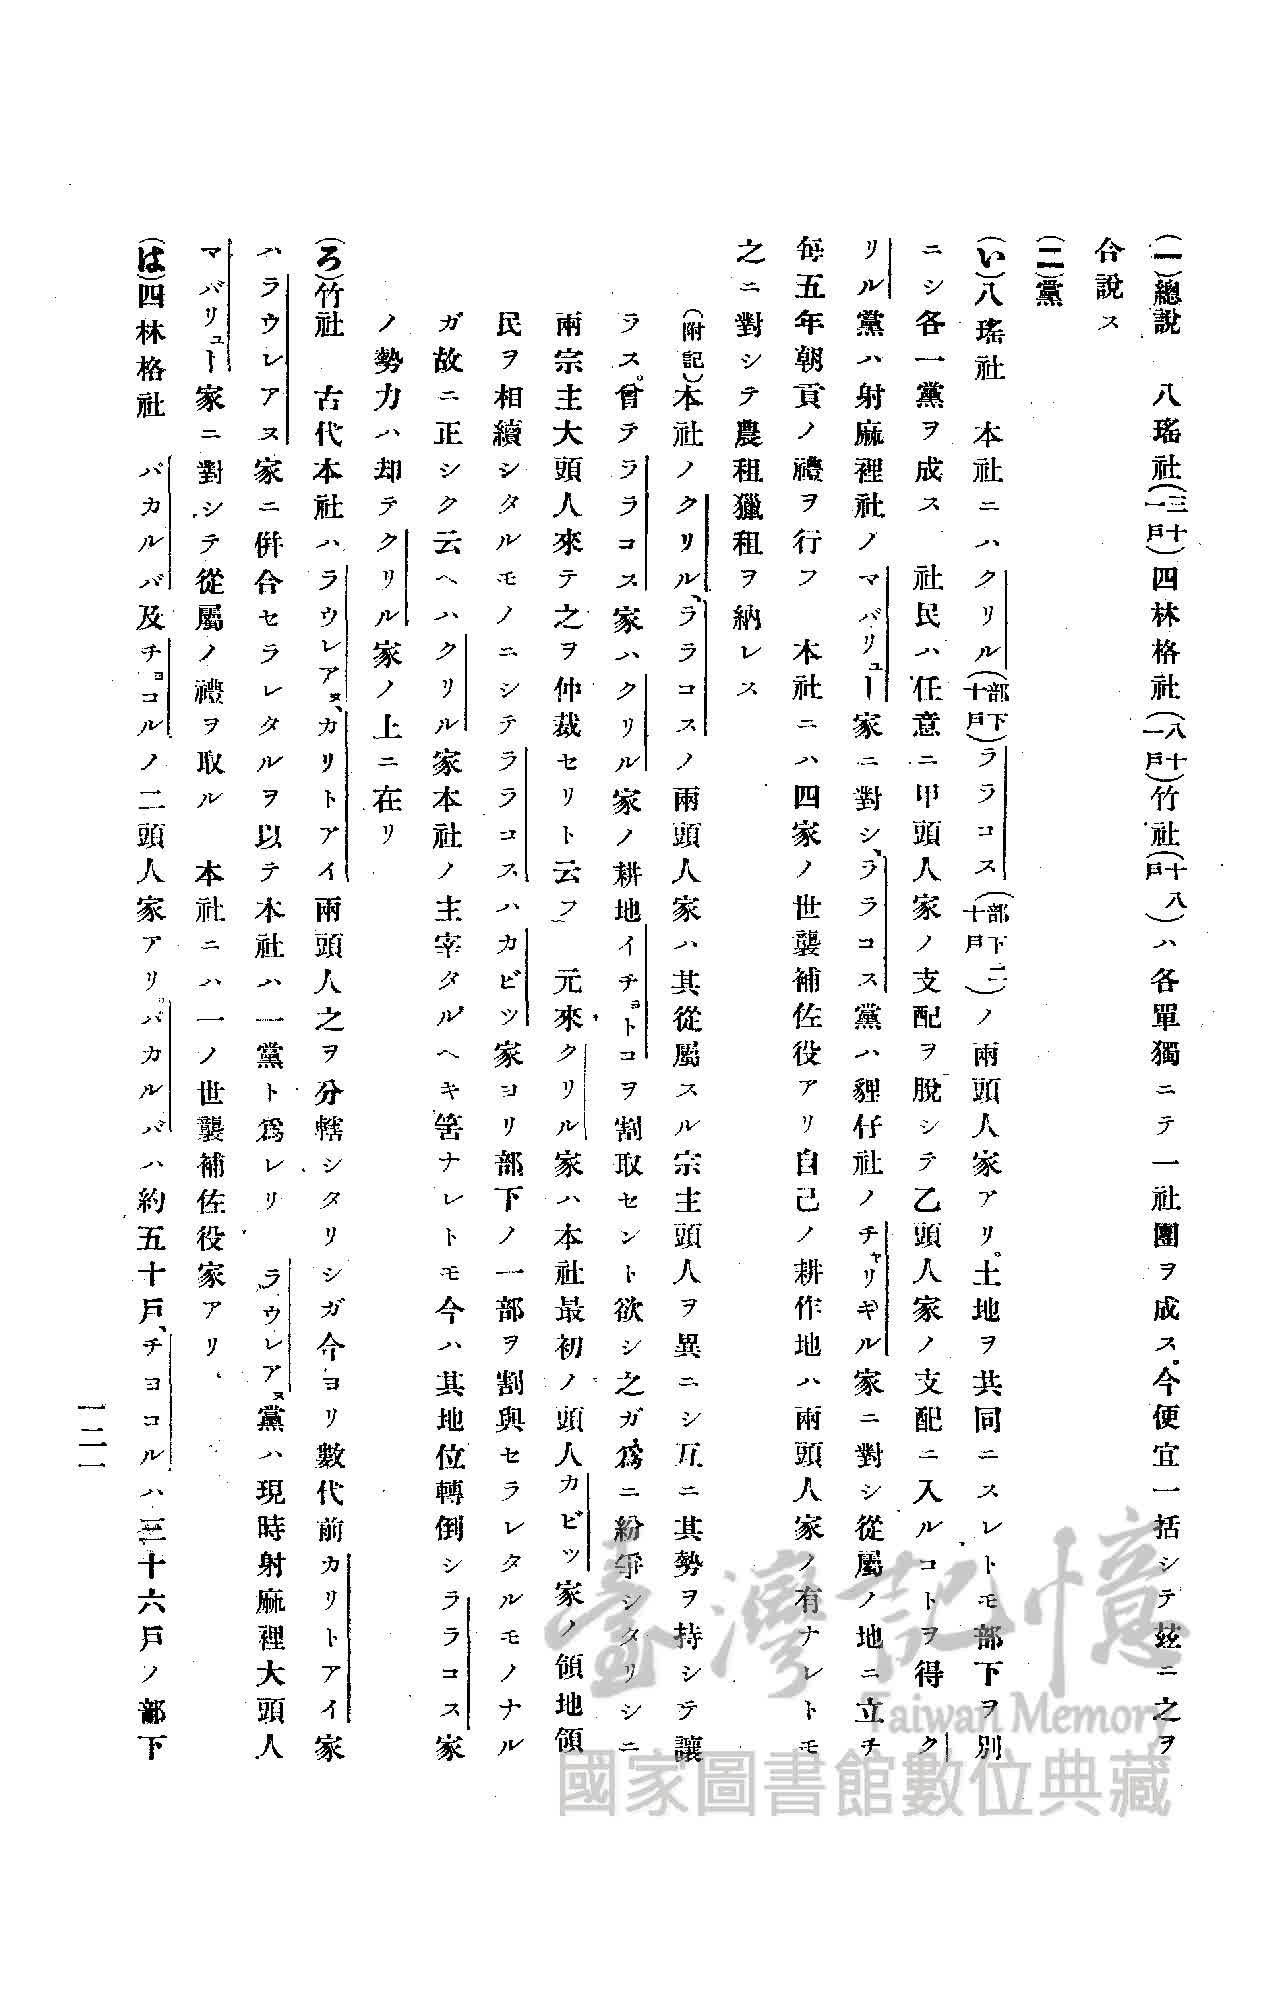 (一)總說　八瑤社(三十一戶)四林格社(八十一戶)竹社(十八戶)ハ各單獨ニテ一社團ヲ成ス。今便宜一括シテ玆ニ之ヲ
合說ス
(二)黨
(い)八瑤社　本社ニハクリル(部下十戶)ララコス(部下二十戶)ノ兩頭人家アリ。土地ヲ共同ニスレトモ部下ヲ別
ニシ各一黨ヲ成ス　社民ハ任意ニ甲頭人家ノ支配ヲ脫シテ乙頭人家ノ支配ニ入ルコトヲ得　ク
リル黨ハ射麻裡社ノマバリュー家ニ對シ、ララコス黨ハ貍仔社ノチャリキル家ニ對シ從屬ノ地ニ立チ
每五年朝貢ノ禮ヲ行フ　本社ニハ四家ノ世襲補佐役アリ自己ノ耕作地ハ兩頭人家ノ有ナレトモ
之ニ對シテ農租獵租ヲ納レス
(附記)本社ノクリル、ララコスノ兩頭人家ハ其從屬スル宗主頭人ヲ異ニシ互ニ其勢ヲ持シテ讓
ラス。曾テララコス家ハクリル家ノ耕地イチョトコヲ割取セント欲シ之ガ爲ニ紛爭シタリシニ
兩宗主大頭人來テ之ヲ仲裁セリト云フ　元來クリル家ハ本社最初ノ頭人カビツ家ノ領地領
民ヲ相續シタルモノニシテララコスハカビツ家ヨリ部下ノ一部ヲ割與セラレタルモノナル
ガ故ニ正シク云ヘハクリル家本社ノ主宰タルヘキ筈ナレトモ今ハ其地位轉倒シララコス家
ノ勢力ハ却テクリル家ノ上ニ在リ
(ろ)竹社　古代本社ハラウレアス、カリトアイ兩頭人之ヲ分轄シタリシガ今ヨリ數代前カリトアイ家
ハラウレアス家ニ併合セラレタルヲ以テ本社ハ一黨ト爲レリ　ラウレアス黨ハ現時射麻裡大頭人
マバリュー家ニ對シテ從屬ノ禮ヲ取ル　本社ニハ一ノ世襲補佐役家アリ
(は)四林格社　バカルバ及チョコルノ二頭人家アリ。バカルバハ約五十戶、チヨコルハ三十六戶ノ部下
一二一
臺灣記憶
Taiwan Memory
國家圖書館數位典藏